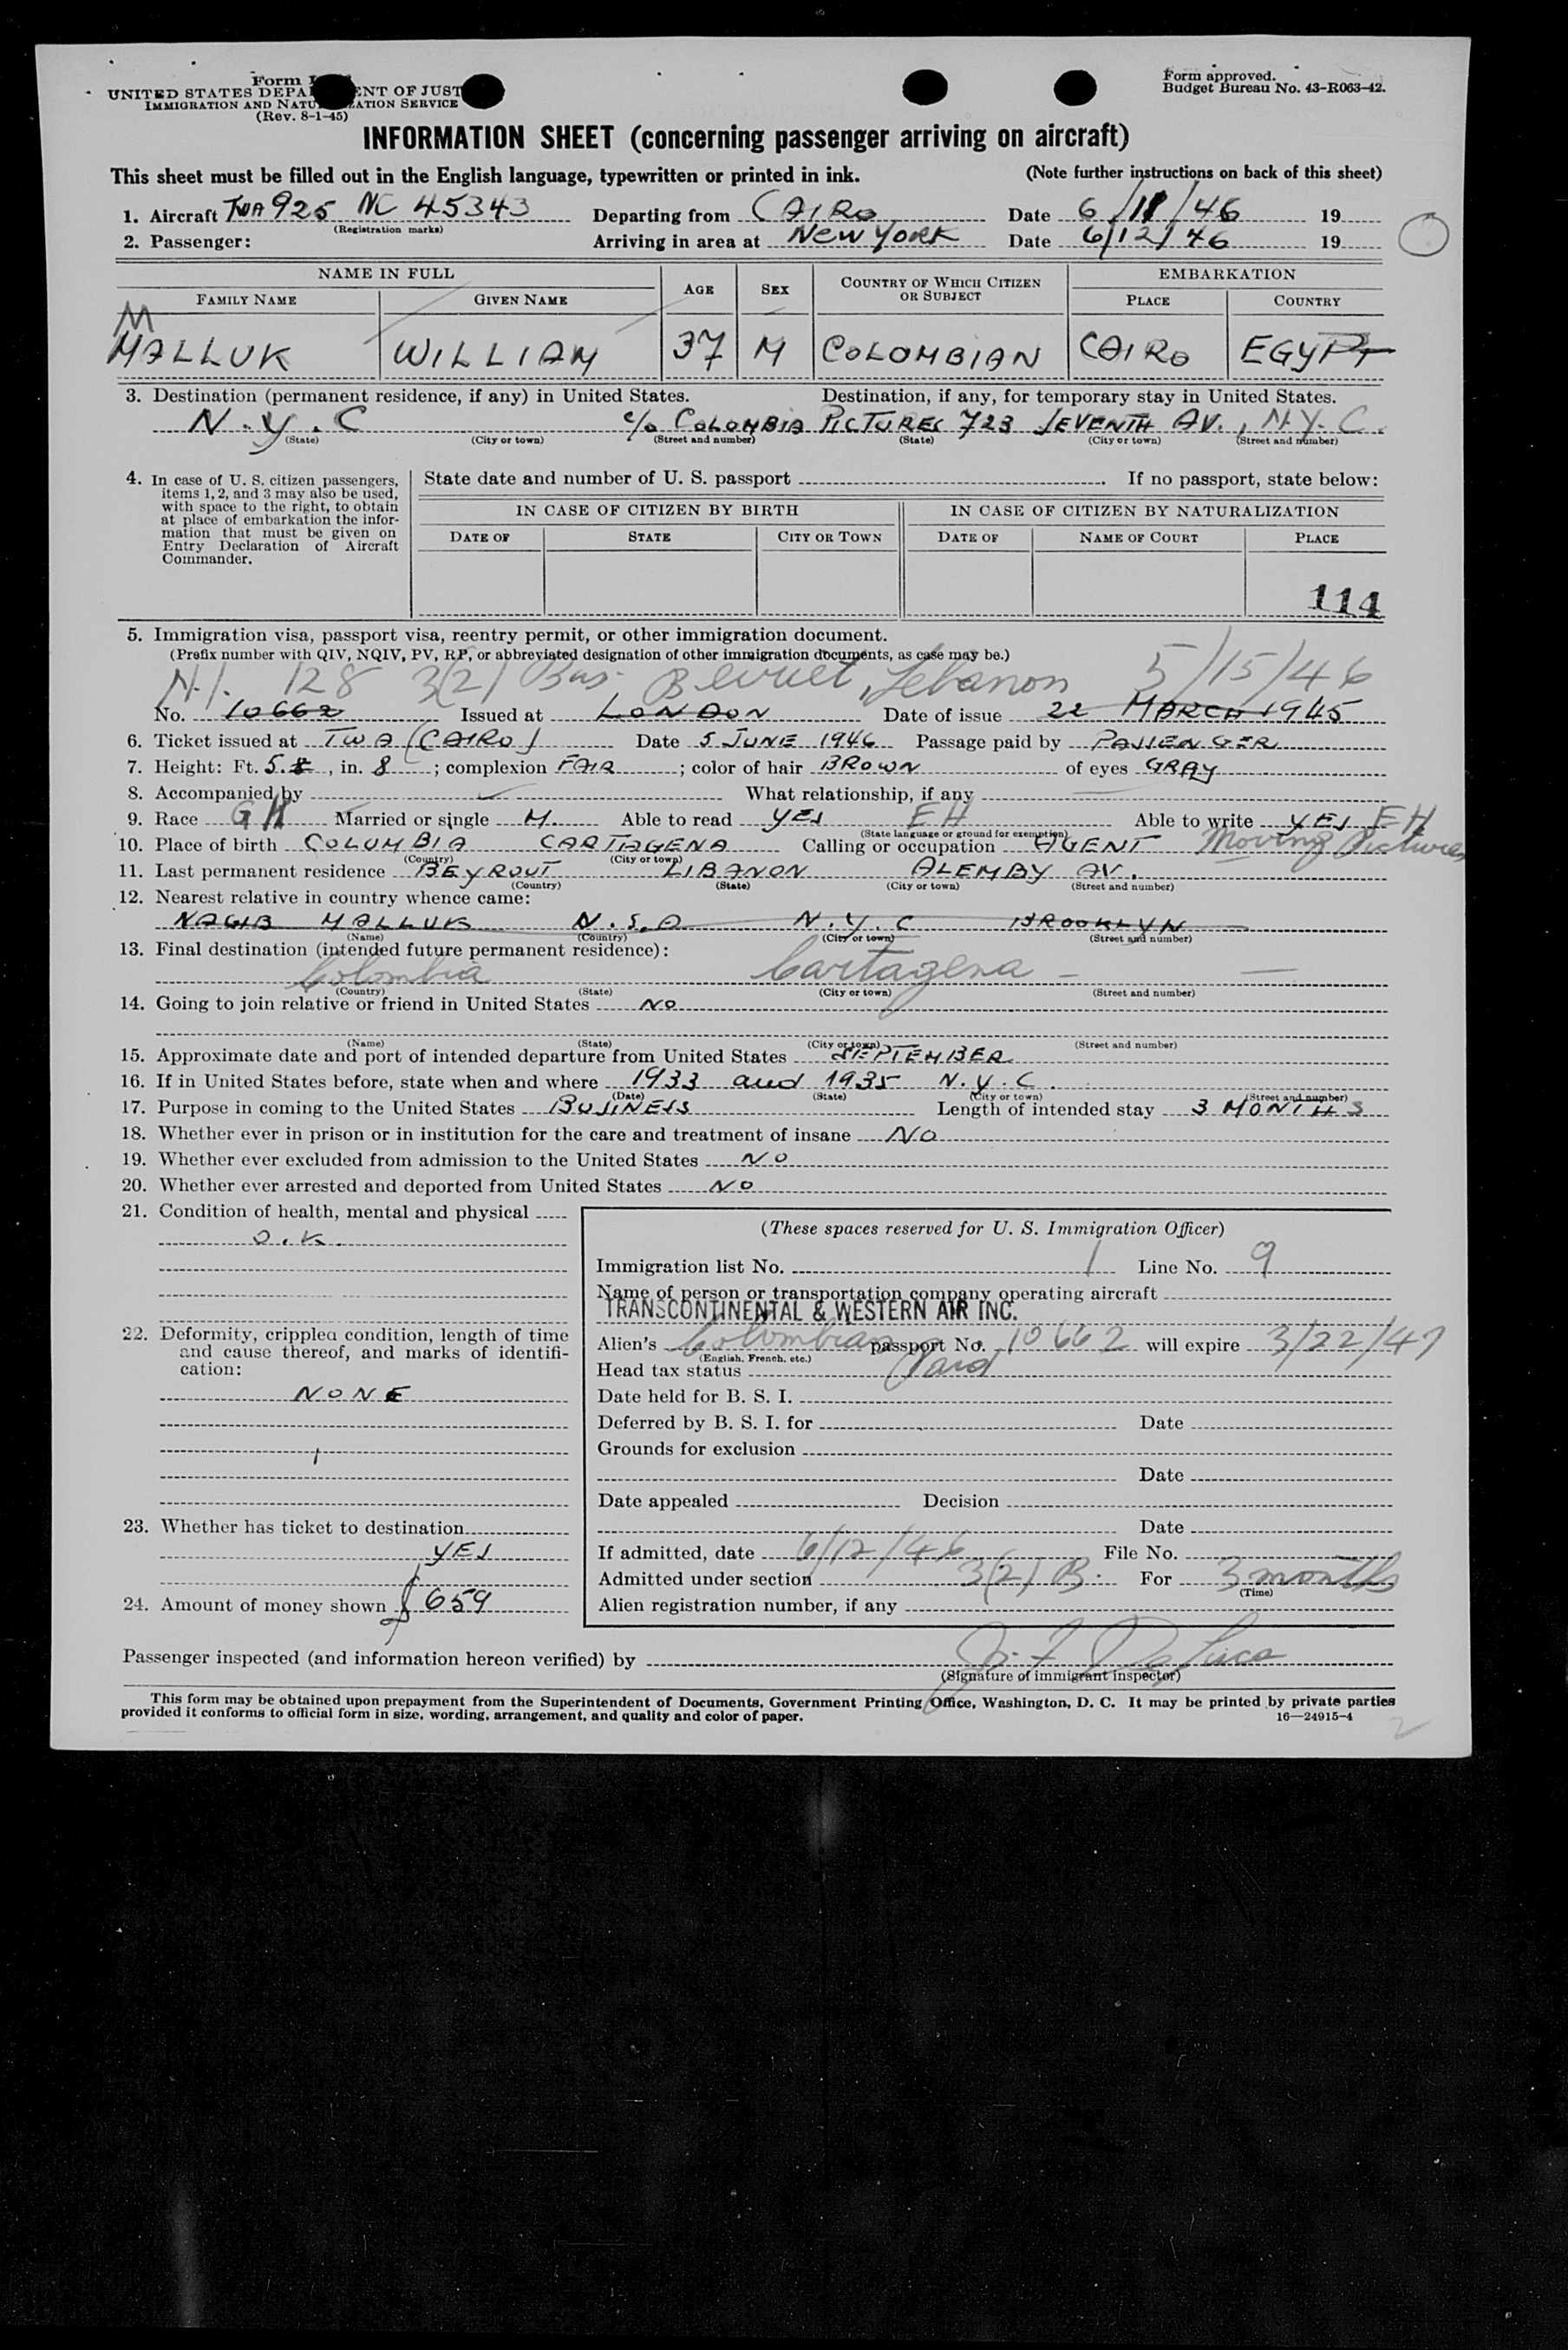 Form
UNITED STATES DEPA ENT OF JUST
IMMIGRATION AND NATU ZATION SERVICE
(Rev. 8-1-45)
Form approved.
Budget Bureau No. 43-R063-42.
INFORMATION SHEET (concerning passenger arriving on aircraft)
This sheet must be filled out in the English language, typewritten or printed in ink. (Note further instructions on back of this sheet)
1. Aircraft TWA 925 NC 45343 Departing from CAIRO Date 6/11/46 19
(Registration marks)
2. Passenger: Arriving in area at NEW YORK Date 6/12/46 19
NAME IN FULL AGE SEX COUNTRY OF WHICH CITIZEN OR SUBJECT EMBARKATION
FAMILY NAME GIVEN NAME PLACE COUNTRY
M
MALLUK WILLIAM 37 M COLOMBIAN CAIRO EGYPT
3. Destination (permanent residence, if any) in United States. Destination, if any, for temporary stay in United States.
N.Y.C c/o COLOMBIA PICTURES 723 SEVENTH AV., N.Y.C.
(State) (City or town) (Street and number) (State) (City or town) (Street and number)
4. In case of U. S. citizen passengers, items 1, 2, and 3 may also be used, with space to the right, to obtain at place of embarkation the information that must be given on Entry Declaration of Aircraft Commander.
State date and number of U. S. passport . If no passport, state below:
IN CASE OF CITIZEN BY BIRTH IN CASE OF CITIZEN BY NATURALIZATION
DATE OF STATE CITY OR TOWN DATE OF NAME OF COURT PLACE
114
5. Immigration visa, passport visa, reentry permit, or other immigration document.
(Prefix number with QIV, NQIV, PV, RP, or abbreviated designation of other immigration documents, as case may be.)
N.I. 128 3(2) Bus. Beirut, Lebanon 5/15/46
No. 10662 Issued at LONDON Date of issue 22 MARCH 1945
6. Ticket issued at TWA (CAIRO) Date 5 JUNE 1946 Passage paid by PASSENGER
7. Height: Ft. 5 , in. 8 ; complexion FAIR ; color of hair BROWN of eyes GRAY
8. Accompanied by What relationship, if any
9. Race Married or single M. Able to read YES EH Able to write YES EH
(State language or ground for exemption)
10. Place of birth COLUMBIA CARTAGENA Calling or occupation AGENT Moving Pictures
(Country) (City or town)
11. Last permanent residence BEYROUT LIBANON ALEMBY AV.
(Country) (State) (City or town) (Street and number)
12. Nearest relative in country whence came:
NAGIB MALLUK N.S.A N.Y.C BROOKLYN
(Name) (Country) (City or town) (Street and number)
13. Final destination (intended future permanent residence):
Colombia Cartagena
(Country) (State) (City or town) (Street and number)
14. Going to join relative or friend in United States NO
(Name) (State) (City or town) (Street and number)
15. Approximate date and port of intended departure from United States SEPTEMBER
16. If in United States before, state when and where 1933 and 1935 N.Y.C.
(Date) (State) (City or town) (Street and number)
17. Purpose in coming to the United States BUSINESS Length of intended stay 3 MONTHS
18. Whether ever in prison or in institution for the care and treatment of insane NO
19. Whether ever excluded from admission to the United States NO
20. Whether ever arrested and deported from United States NO
21. Condition of health, mental and physical
O.K.
22. Deformity, crippled condition, length of time and cause thereof, and marks of identification:
NONE
23. Whether has ticket to destination
YES
24. Amount of money shown $659
(These spaces reserved for U. S. Immigration Officer)
Immigration list No. 1 Line No. 9
Name of person or transportation company operating aircraft
TRANSCONTINENTAL & WESTERN AIR INC.
Alien's Colombian passport No. 10662 will expire 3/22/47
(English, French, etc.)
Head tax status Paid
Date held for B. S. I.
Deferred by B. S. I. for Date
Grounds for exclusion
Date
Date appealed Decision
Date
If admitted, date 6/12/46 File No.
Admitted under section 3(2) B. For 3 months
(Time)
Alien registration number, if any
Passenger inspected (and information hereon verified) by
(Signature of immigrant inspector)
This form may be obtained upon prepayment from the Superintendent of Documents, Government Printing Office, Washington, D. C. It may be printed by private parties
provided it conforms to official form in size, wording, arrangement, and quality and color of paper. 16—24915-4
2